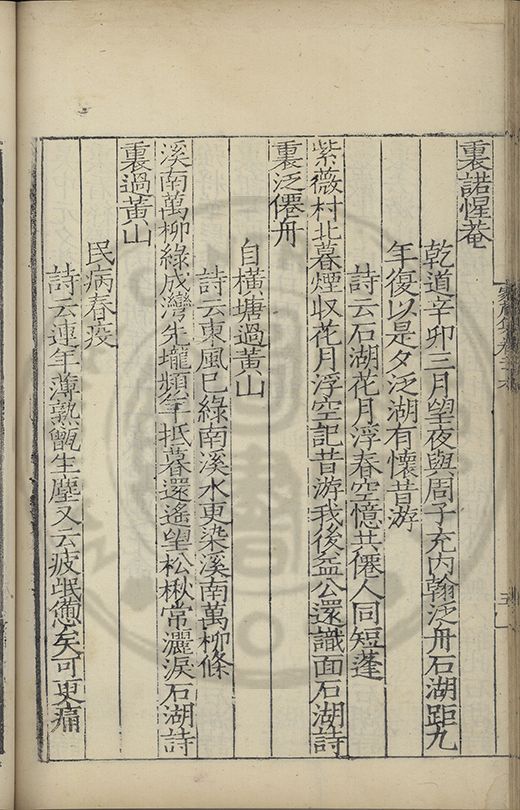 裏諾惺菴
乾道辛卯三月望夜與周子充内翰泛舟石湖距九
年復以是夕泛湖有懷昔游
詩云石湖花月浮春空憶共僊人同短蓬
紫薇村北暮煙収花月浮空記昔游我後盃公還識面石湖詩
裏泛僊舟
自橫塘過黃山
詩云東風已綠南溪水更染溪南萬柳條
溪南萬柳綠成灣先壠頻年抵暮還遙望松楸常灑淚石湖詩
裏過黃山
民病春疫
詩云連年薄熟甑生塵又云疲氓憊矣可更痛